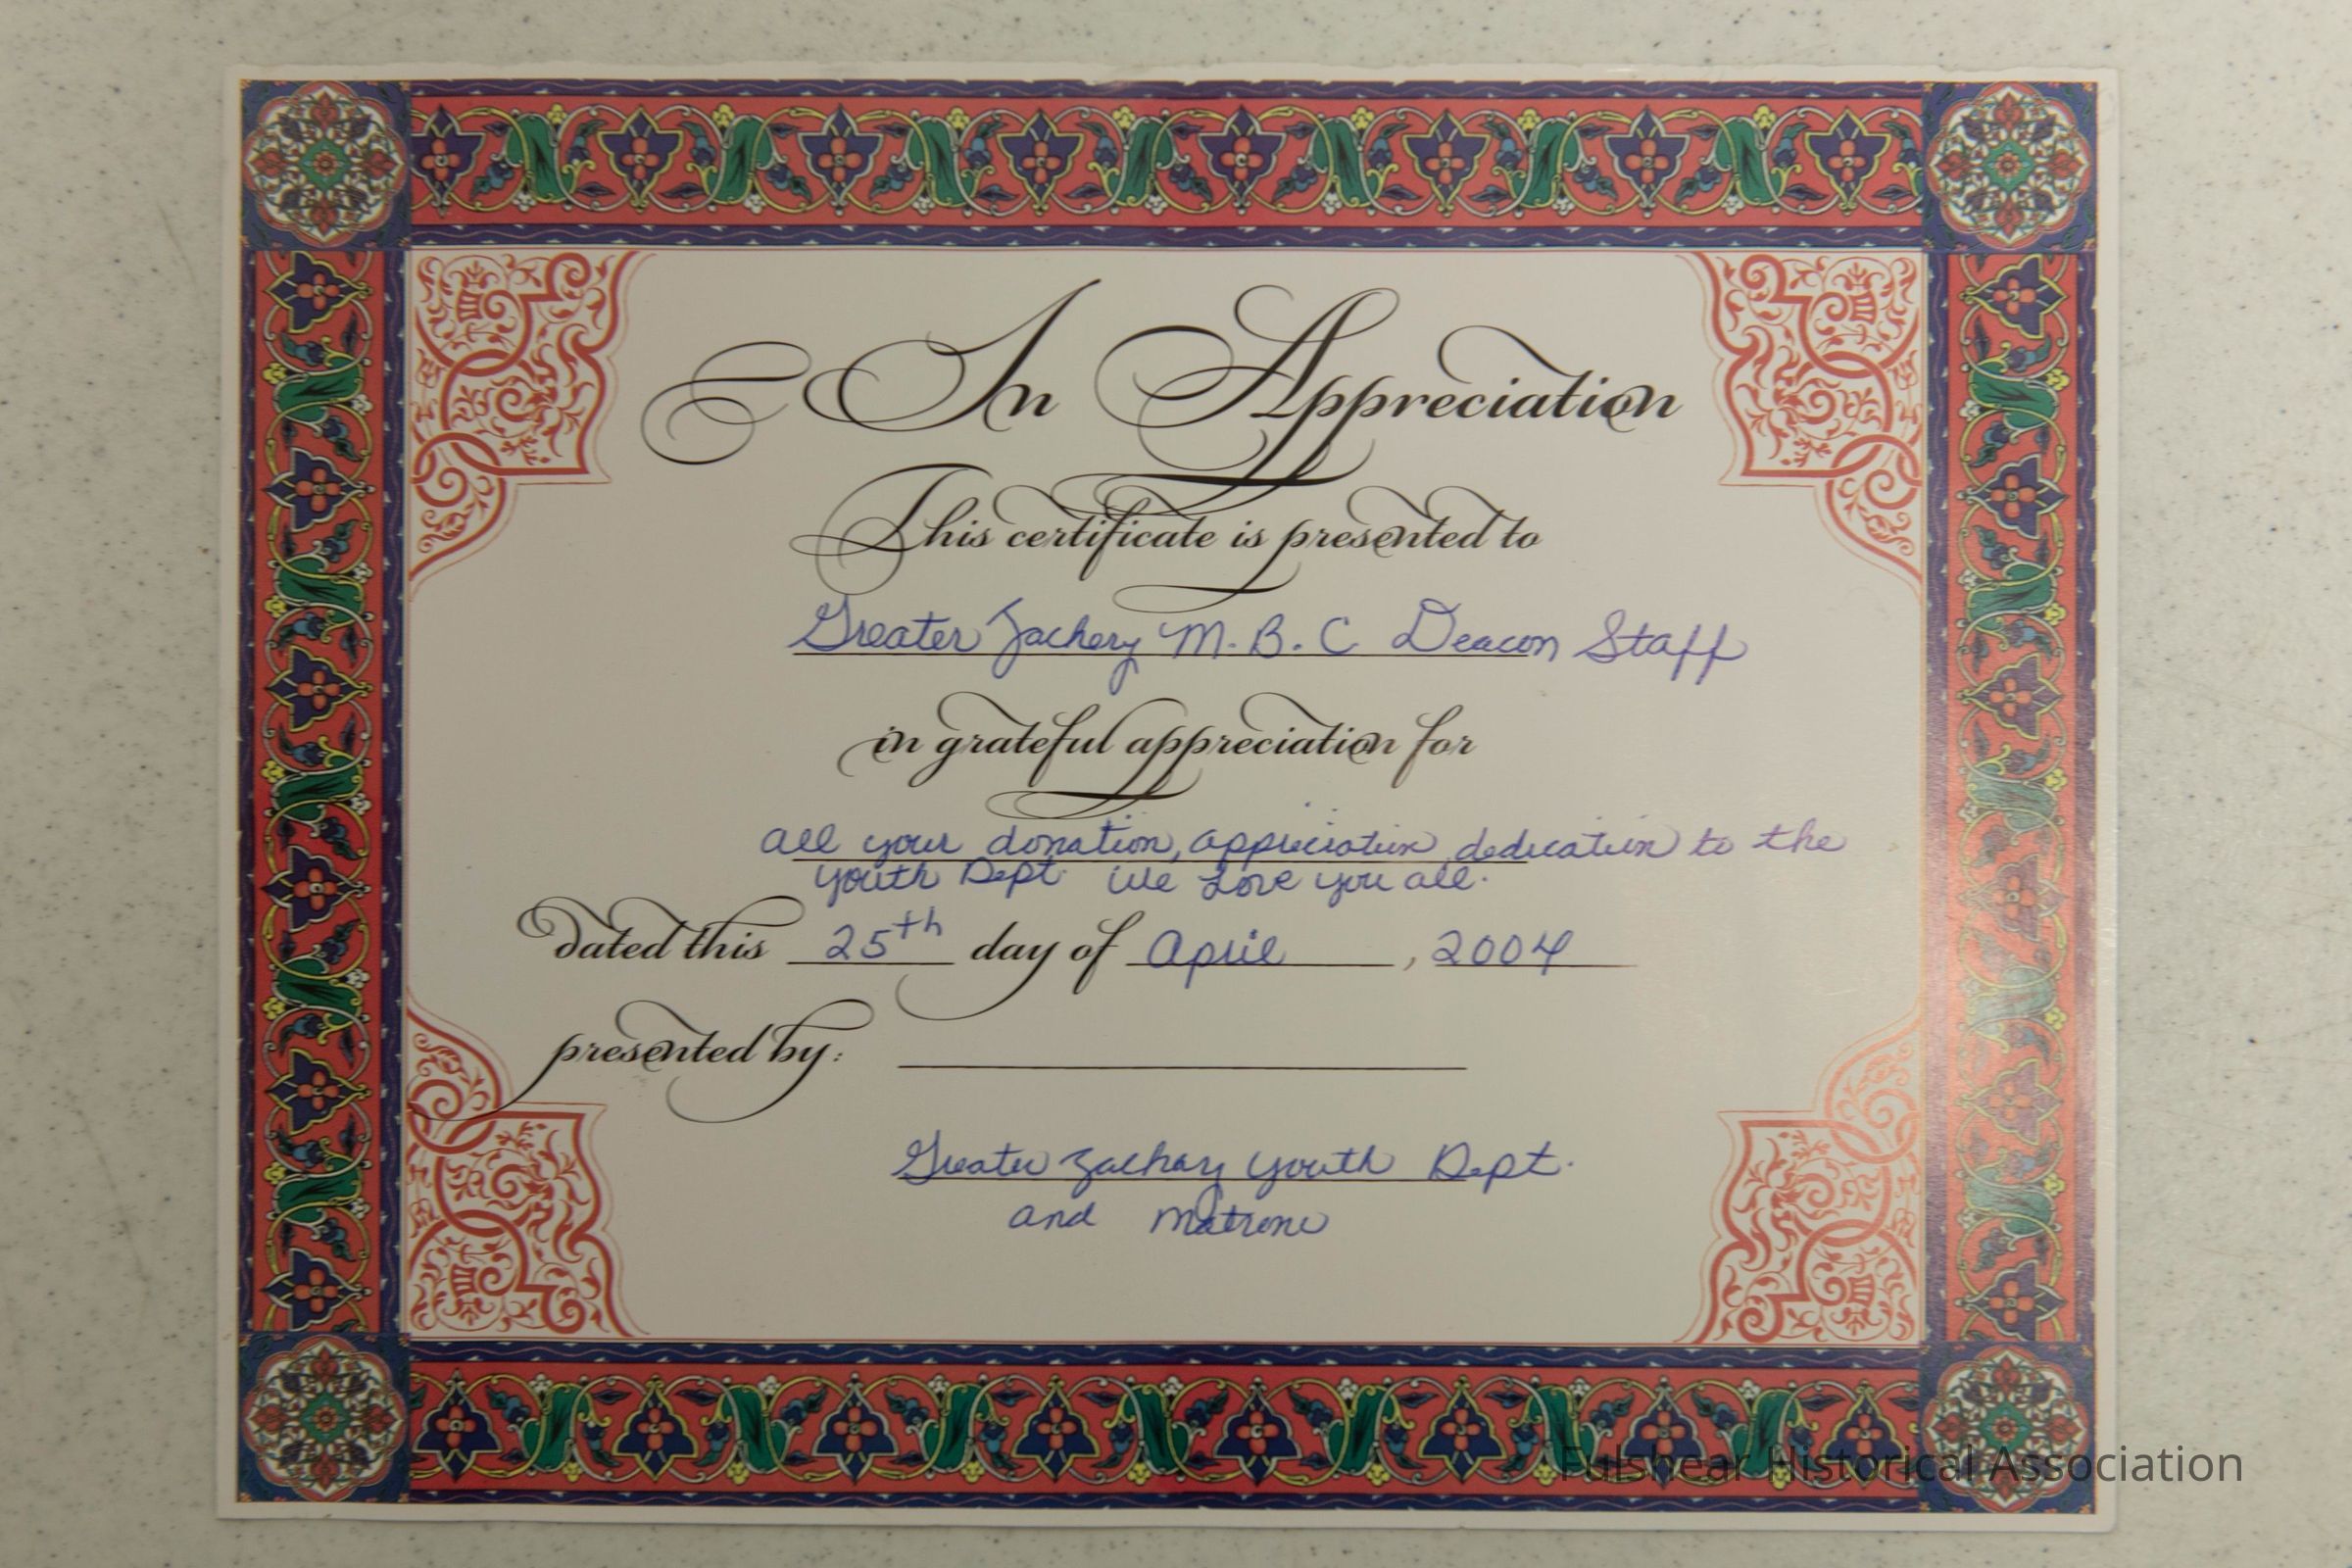 In Appreciation
This certificate is presented to
Greater Zachery M. B. C Deacon Staff
in grateful appreciation for
all your donation, appreciation, dedication to the
youth Dept. We Love you all.
dated this 25th day of April, 2004
presented by:
Greater Zachary Youth Dept.
and Matrons
Fulshear Historical Association